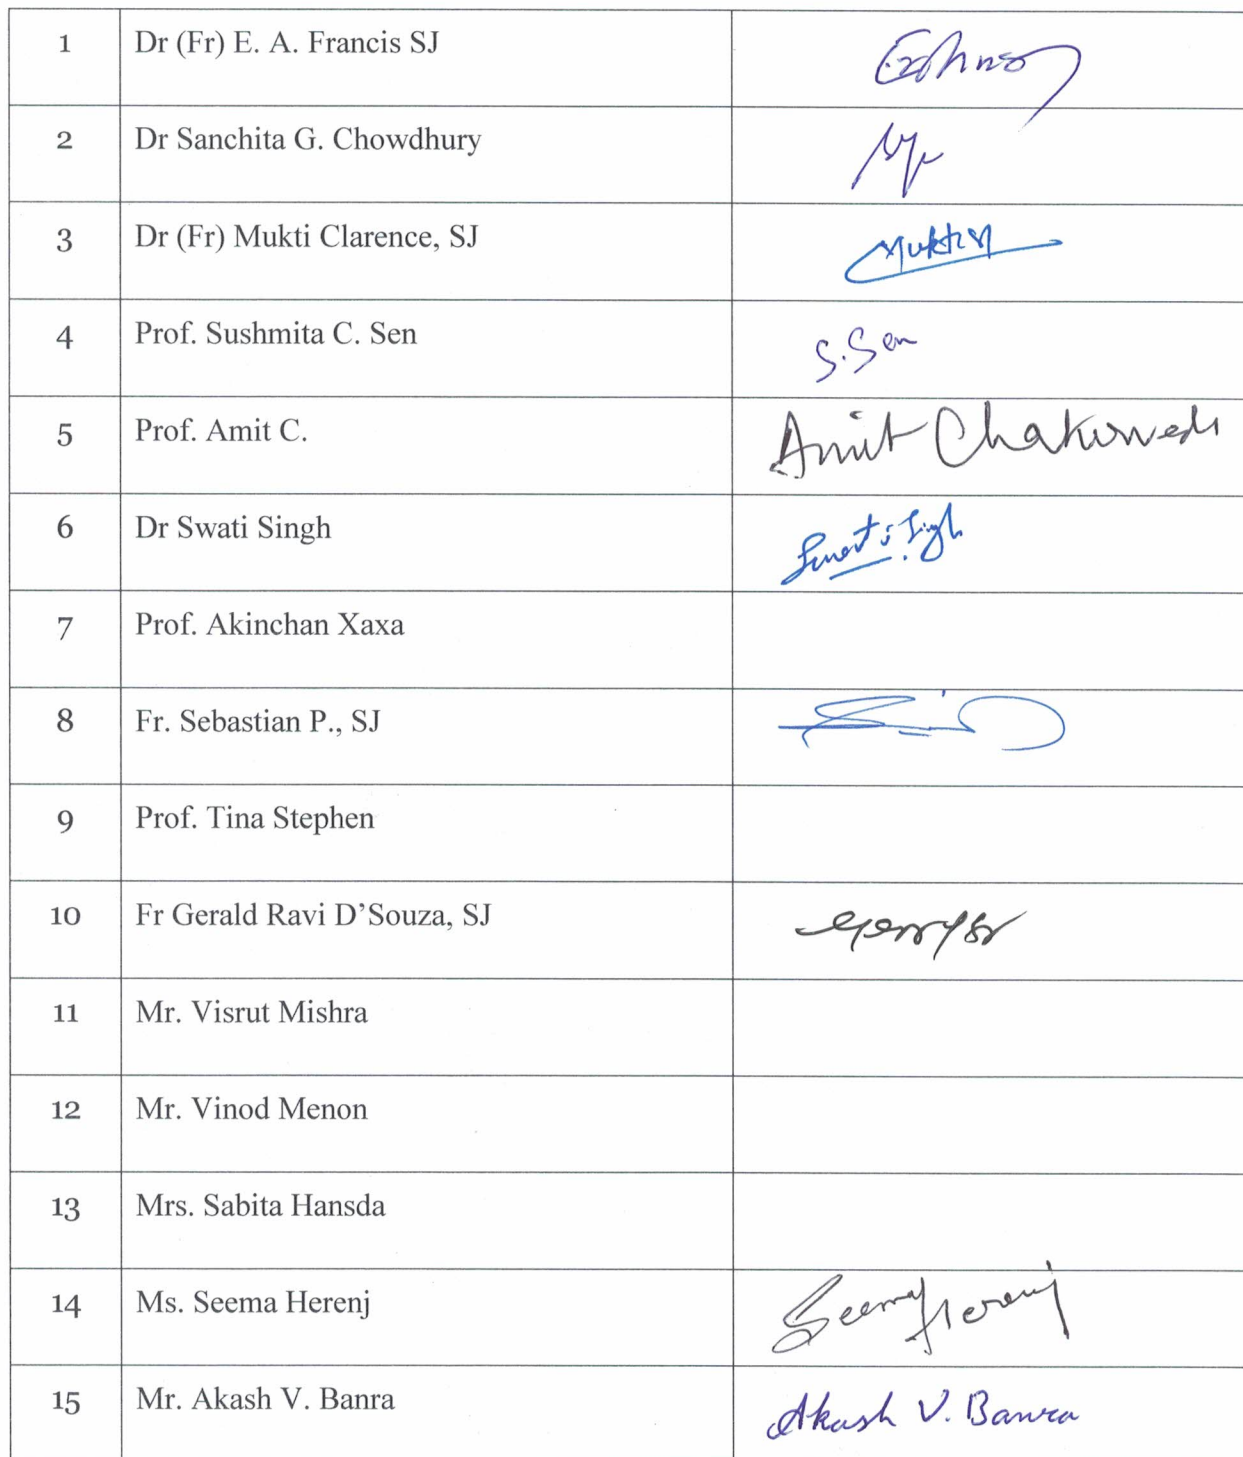 1 Dr (Fr) E. A. Francis SJ
2 Dr Sanchita G. Chowdhury
3 Dr (Fr) Mukti Clarence, SJ
4 Prof. Sushmita C. Sen S. Sen
5 Prof. Amit C. Amit
6 Dr Swati Singh Swati Singh
7 Prof. Akinchan Xaxa
8 Fr. Sebastian P., SJ
9 Prof. Tina Stephen
10 Fr Gerald Ravi D’Souza, SJ
11 Mr. Visrut Mishra
12 Mr. Vinod Menon
13 Mrs. Sabita Hansda
14 Ms. Seema Herenj Seema Herenj
15 Mr. Akash V. Banra Akash V. Banra